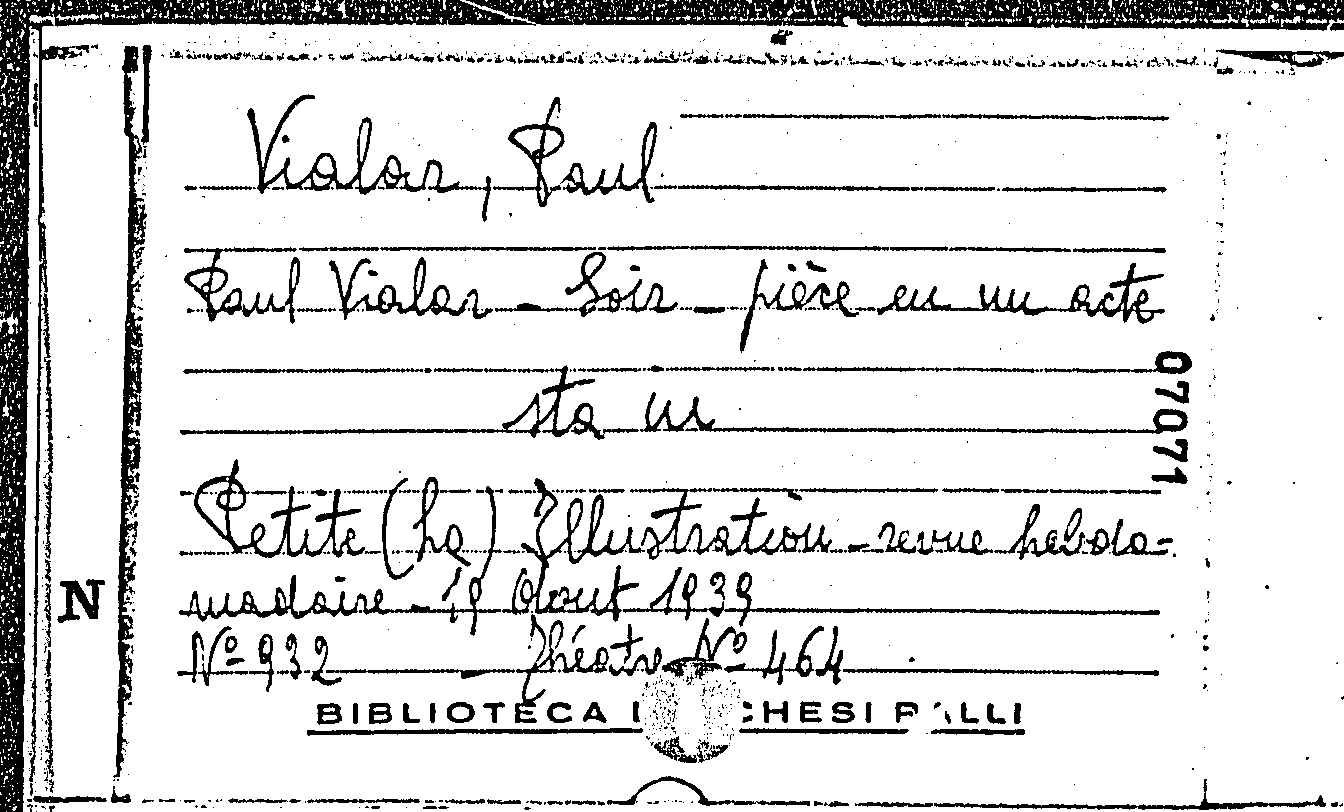 Vialar, Paul
Paul Vialar - Soir - pièce en un acte
sta in
Petite (La) Illustration - revue hebdo=
madaire - 19 Aout 1939
Nº 932 - Théatre Nº 464
BIBLIOTECA
N
07071